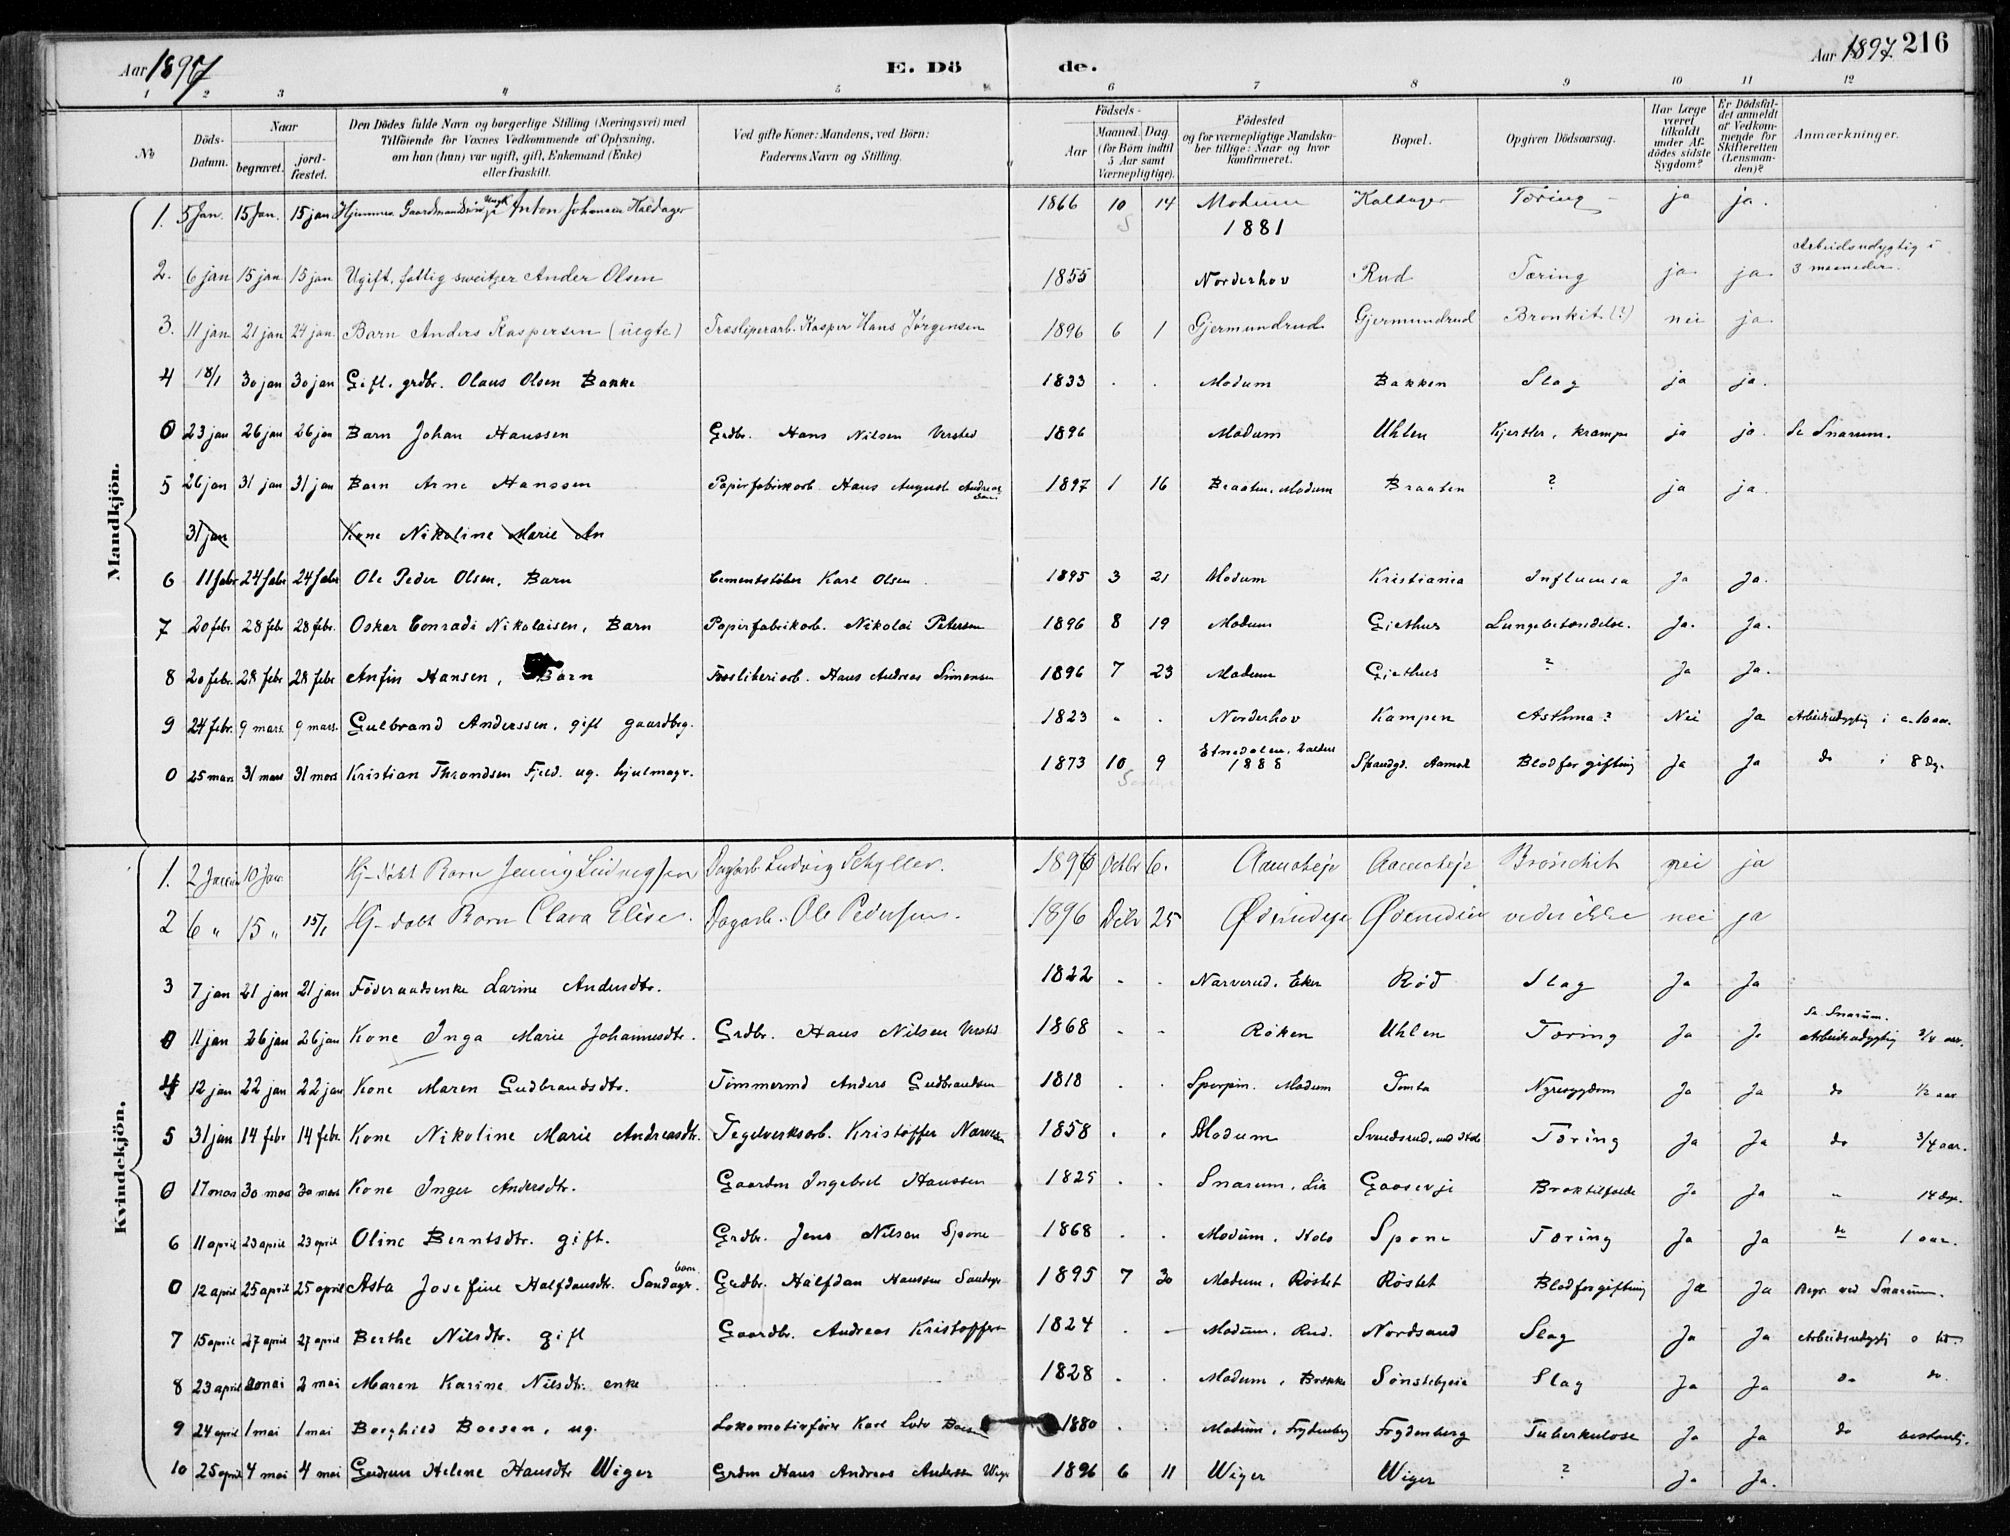 Aar 1897
E. Döde.
Aar 1897 216
1 2 3 4 5 6 7 8 9 10 11 12
No
Döds-Datum.
Naar begravet. jordfæstet.
Den Dödes fulde Navn og borgerlige Stilling (Næringsvei) med Tilföiende for Voxnes Vedkommende af Oplysning, om han (hun) var ugift, gift, Enkemand (Enke) eller fraskilt.
Ved gifte Koner: Mandens, ved Börn: Faderens Navn og Stilling.
Födsels-
Aar
Maaned. Dag. (for Börn indtil 5 Aar samt Værnepligtige).
Födested og for værnepligtige Mandskaber tillige: Naar og hvor konfirmeret.
Bopæl.
Opgiven Dödsaarsag.
Har Læge været tilkaldt under Afdödes sidste Sygdom?
Er Dödsfaldet anmeldt af Vedkommende for Skifteretten (Lensmanden)?
Anmærkninger.
Mandkjön.
1. 5 Jan. 15 Jan. 15 jan Hjemmev. Gaardmandssön Ungk Anton Johansen Kaldager 1866 10 14 Modum 1881 Kaldager Tæring ja ja.
2. 6 jan 15 jan 15 jan Ugift, fattig sweitzer Ander Olsen 1855 Norderhov Rud Tæring ja ja Arbeidsudygtig i 3 maaneder.
3. 11 jan 21 jan 24 jan Barn Anders Kaspersen (uegte) Træsliperarb. Kasper Hans Jørgensen 1896 6 1 Gjermundrud Gjermundrud Bronkit (?) nei ja
4 18/1 30 jan 30 jan Gift. grdbr. Olaus Olsen Bakke 1833 . . Modum Bakken Slag ja ja.
0 23 jan 26 jan 26 jan Barn Johan Hanssen Grdbr. Hans Nilsen Versted 1896 Modum Uhlen Kjertler, krampe ja ja. Se Snarum.
5 26 jan 31 jan 31 jan Barn Arne Hanssen Papirfabrikarb. Hans August Andreassen 1897 1 16 Braaten, Modum Braaten ? ja ja.
31 jan Kone Nikoline Marie An
6 11 febr 24 febr 24 febr Ole Peder Olsen, Barn Cementstøber Karl Olsen. 1895 3 21 Modum Kristiania Influensa Ja Ja.
7 20 febr. 28 febr 28 febr. Oskar Conradi Nikolaisen, Barn Papirfabrikarb. Nikolai Petersen 1896 8 19 Modum Giethus Lungebetændelse. Ja. Ja.
8 20 febr. 28 febr 28 febr Anfin Hansen, Barn Træsliberiarb. Hans Andreas Simensen 1896 7 23 Modum Giethus ? Ja Ja.
9 24 febr. 9 mars. 9 mars. Gulbrand Anderssen, gift gaardbrg. 1823 . . Norderhov Kampen Asthma? Nei Ja Arbeidsudygtig i c. 10 aar.
0 25 mars 31 mars 31 mars Kristian Throndsen Fjeld. ug. hjulmagr. 1873 10 9 Etnedalen, Valders 1888 Strandgt. Aamot Blodforgiftning Ja Ja do i 8 dg.
Kvindekjön.
1. 2 Januar 10 Jan. Hj-döbt Barn Jenny Ludvigsen Dagarb. Ludvig Schyller. 1896 Octbr 6. Aamoteje Aamoteje Bronchit nei ja
2 6 " 15 " 15/1 Hj-döbt Barn Clara Elise. Dagarb. Ole Pedersen. 1896 Debr 25 vides ikke nei ja
3 7 jan 21 jan 21 jan Föderaadsenke Larine Andersdtr. 1822 . . Narverud, Eker Röd Slag Ja Ja
0 11 jan 26 jan 26 jan Kone Inga Marie Johannesdtr. Grdbr. Hans Nilsen Versted 1868 - - Röken Uhlen Tæring Ja Ja Se Snarum. Arbeidsudygtig 3/4 aar.
4 12 jan 22 jan 22 jan Kone Maren Gudbrandsdtr. Tömmermd Anders Gudbrandsen 1818 . . Sporpin. Modum Tomta Nyresygdom Ja Ja do 1/2 aar
5 31 jan 14 febr 14 febr. Kone Nikoline Marie Andreasdtr. Teglverksarb. Kristoffer Narvesen 1858 . . Modum Svendsrud, Tæring Ja Ja do 3/4 aar.
0 17 mars 30 mars 30 mars Kone Inger Andersdtr. Gaardm Ingebret Hanssen 1825 . . Snarum, Lia Gaasevje Broktilfælde Ja Ja " 14 dage.
6 11 april 23 april 23 april Oline Berntsdtr. gift. Grdbr. Jens Nilsen Spone 1868 . . Modum, Hole Spone Tæring Ja Ja do 1 aar.
0 12 april 25 april 25 april Asta Josefine Halfdansdtr. Sandager. barn Grdbr. Halfdan Hanssen Sandager 1895 7 30 Modum, Röstet Röstet Blodforgiftning Ja Ja Begr. ved Snarum.
7 15 april 27 april 27 april Berthe Nilsdtr. gift Gaardbr. Andreas Kristoffersen 1824 . - Modum, Rud. Nordsand Slag Ja Ja Arbeidsudygti
8 23 april 2 mai 2 mai Maren Karine Nilsdtr. enke 1828 . . Modum, Brekke Sönstebyeie Slag Ja Ja do do.
9 24 april 1 mai 1 mai Borghild Boesen, ug. Lokomotivförer Karl Ludv Boesen 1880 . . Modum, Frydenberg Frydenberg Tuberkulose Ja Ja do bestandig.
10 25 april 4 mai 4 mai Gudrun Helene Hansdtr Wiger Grdm Hans Andreas Anderssen Wiger 1896 6 11 Wiger Wiger ? Ja Ja.